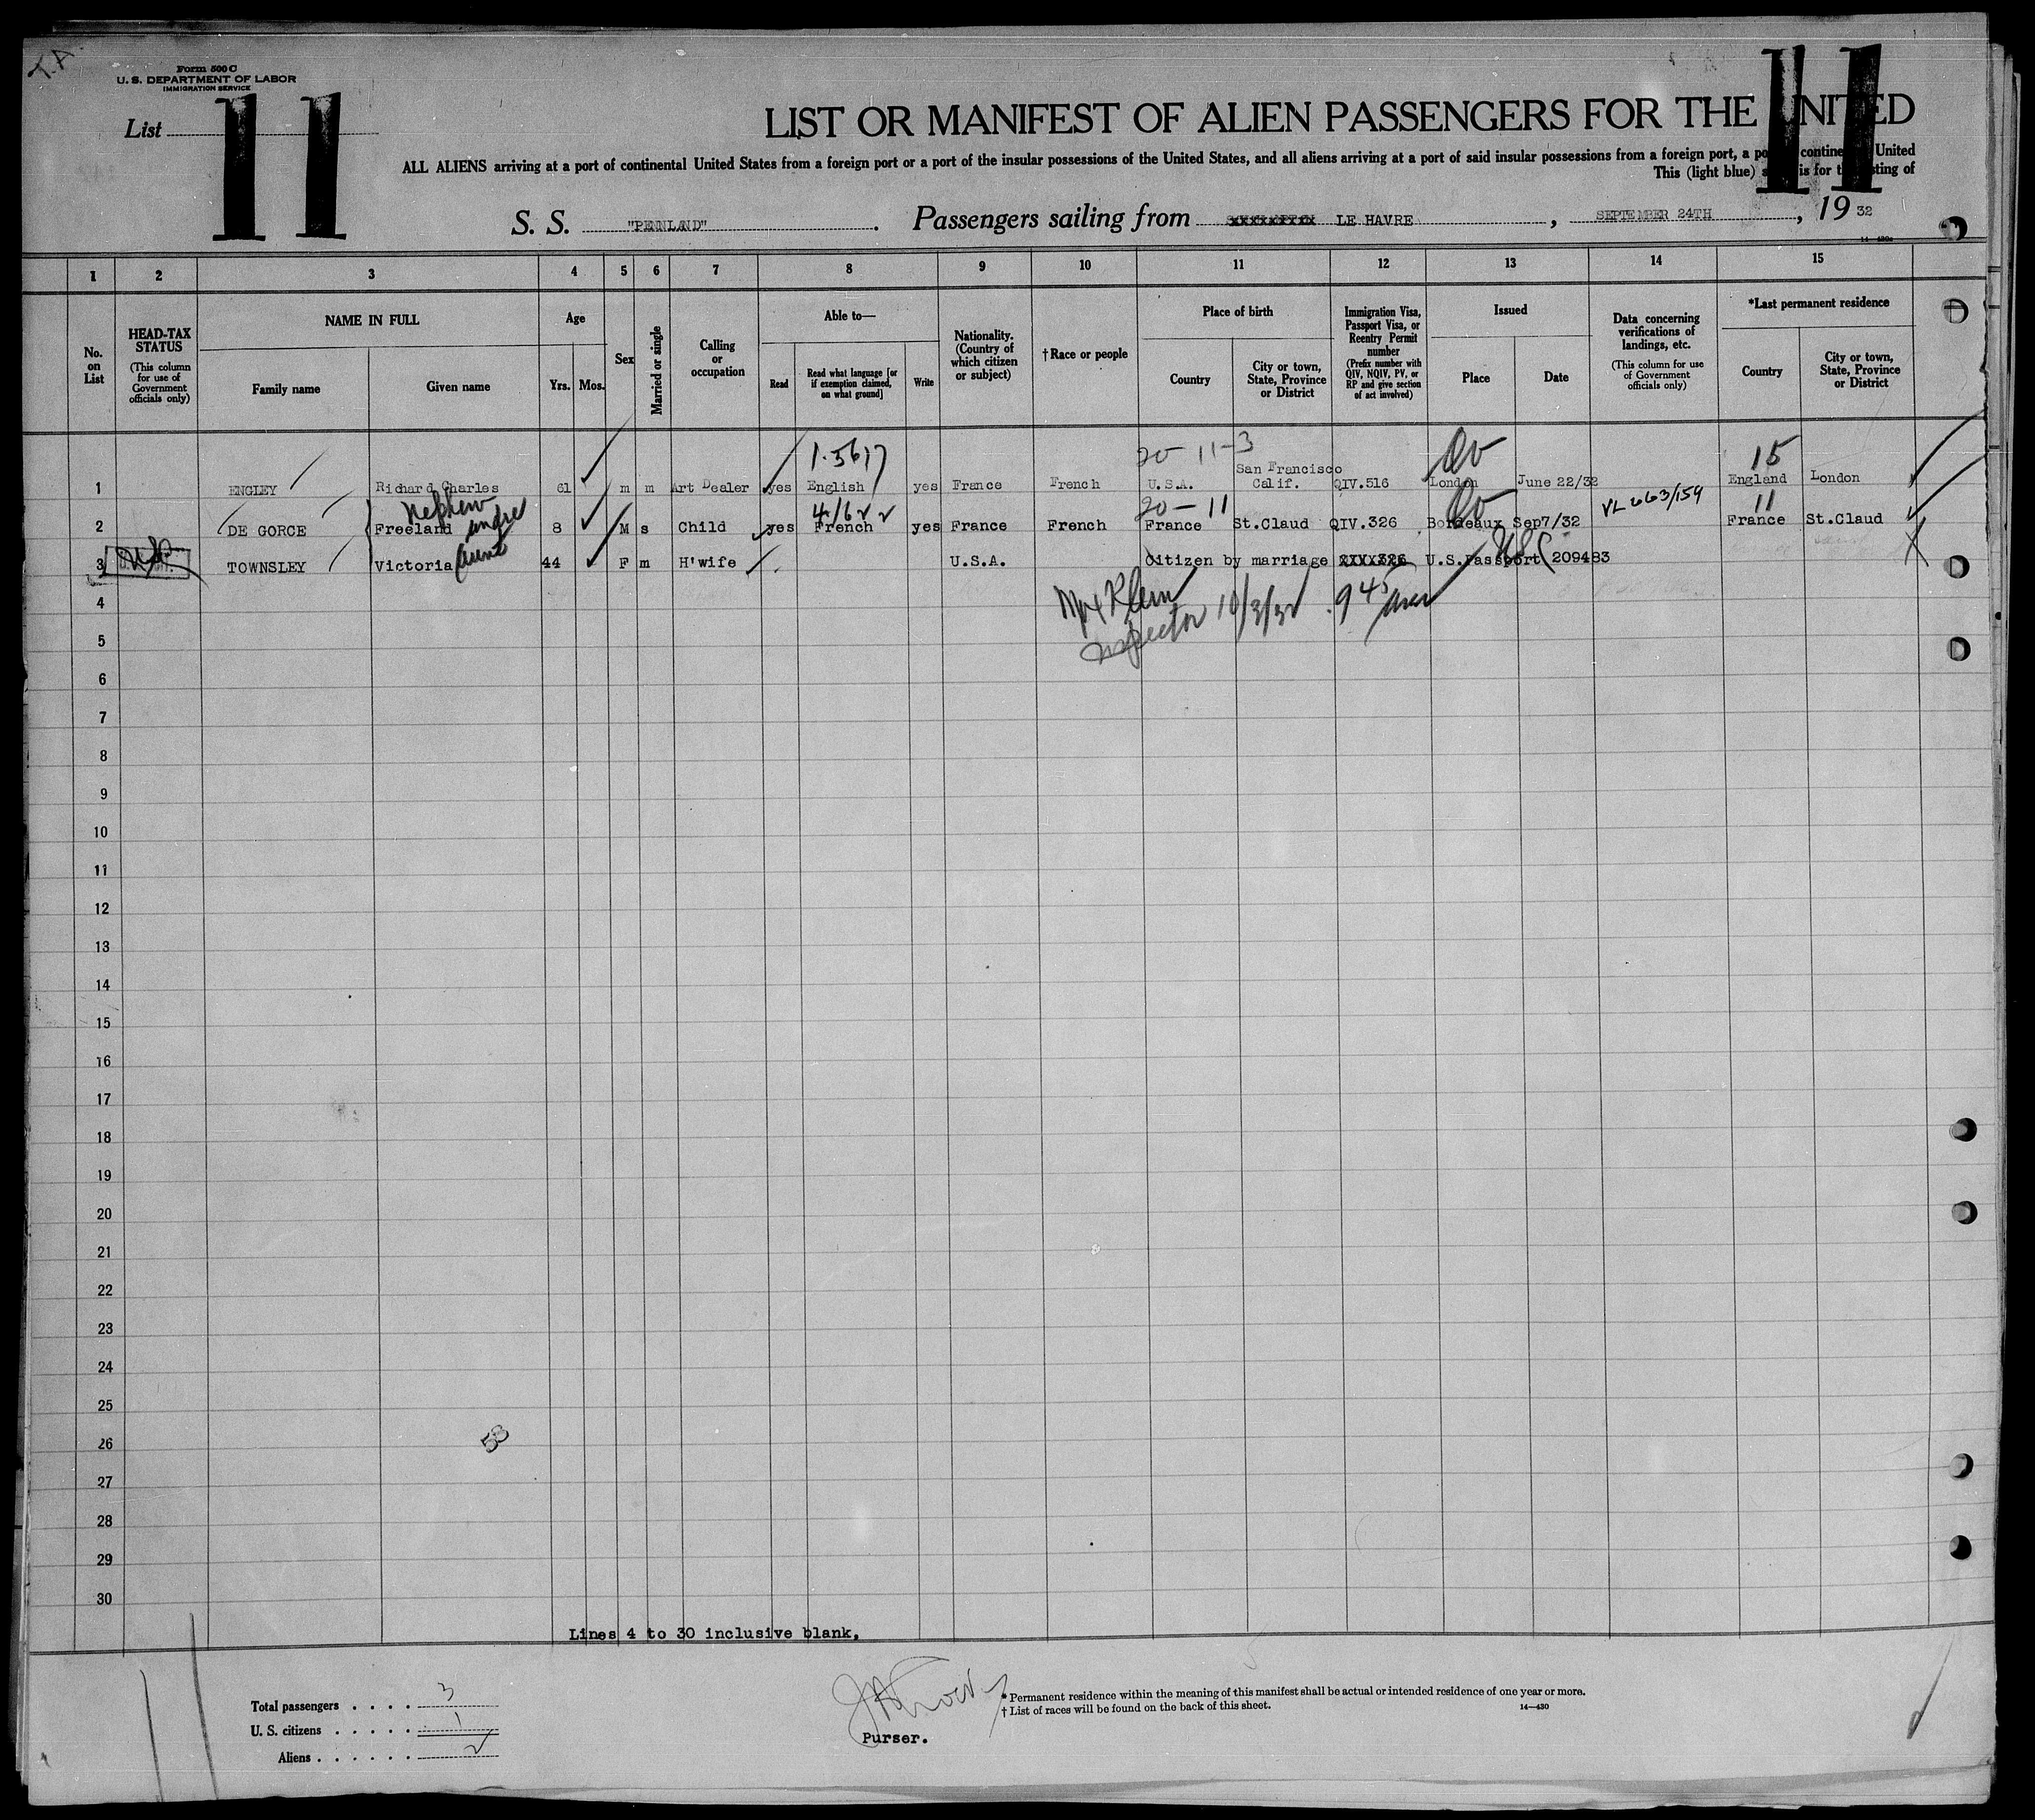 T.A.
Form 500 C
U. S. DEPARTMENT OF LABOR
IMMIGRATION SERVICE
List 11
11
LIST OR MANIFEST OF ALIEN PASSENGERS FOR THE UNITED
ALL ALIENS arriving at a port of continental United States from a foreign port or a port of the insular possessions of the United States, and all aliens arriving at a port of said insular possessions from a foreign port, a po contine United
This (light blue) s is for t sting of
S. S. "PENNLAND". Passengers sailing from xxxxxxxxx LE HAVRE, SEPTEMBER 24TH, 19 32
1 2 3 4 5 6 7 8 9 10 11 12 13 14 15
No. on List
HEAD-TAX STATUS
(This column for use of Government officials only)
NAME IN FULL
Family name
Given name
Age
Yrs. Mos.
Sex
Married or single
Calling or occupation
Able to—
Read
Read what language [or if exemption claimed, on what ground]
Write
Nationality. (Country of which citizen or subject)
†Race or people
Place of birth
Country
City or town, State, Province or District
Immigration Visa, Passport Visa, or Reentry Permit number
(Prefix number with QIV, NQIV, PV, or RP and give section of act involved)
Issued
Place
Date
Data concerning verifications of landings, etc.
(This column for use of Government officials only)
*Last permanent residence
Country
City or town, State, Province or District
1.5617 20-11-3 15
1 ENGLEY Richard Charles 61 m m Art Dealer yes English yes France French U.S.A. San Francisco Calif. QIV.516 London June 22/32 England London
Nephew 4/622 20-11 VL 663/159 11
2 DE GORCE Freeland andre 8 M s Child yes French yes France French France St.Claud QIV.326 Bordeaux Sep7/32 France St.Claud
3 TOWNSLEY Victoria Aunt 44 F m H'wife U.S.A. Citizen by marriage XXXX326 U.S.Passport 209483
USC
4
Inspector 10/3/32 9 45
5
6
7
8
9
10
11
12
13
14
15
16
17
18
19
20
21
22
23
24
25
26
53
27
28
29
30
Lines 4 to 30 inclusive blank,
Total passengers . . . . 3
U. S. citizens . . . . . 1
Aliens . . . . . . 2
Purser.
* Permanent residence within the meaning of this manifest shall be actual or intended residence of one year or more.
† List of races will be found on the back of this sheet.
14—430